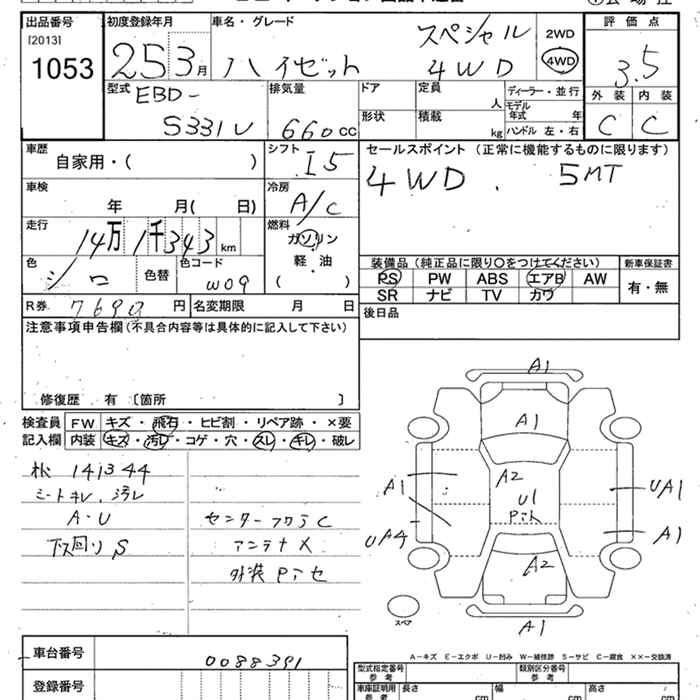 出品番号 初度登録年月 車名・グレード 評価点
[2013] スペシャル 2WD
1053 25 3月 ハイゼット 4WD 4WD 3.5
型式 EBD- 排気量 ドア 定員 人 ディーラー・並行 外装 内装
S331U 660cc 形状 積載 kg モデル年式 年 C C
ハンドル 左・右
車歴 自家用・( ) シフト I5 セールスポイント (正常に機能するものに限ります)
車検 年 月( 日) 冷房 A/C 4WD. 5MT
走行 14万1千343km 燃料 ガソリン
軽・油
色 シロ 色替 色コード W09 ( ) 装備品 (純正品に限り○をつけてください) 新車保証書
PS PW ABS エアB AW 有・無
SR ナビ TV カワ
R券 7690円 名変期限 月 日 後日品
注意事項申告欄 (不具合内容等は具体的に記入して下さい)
修復歴 有 〔箇所 〕
検査員 FW キズ・飛石・ヒビ割・リペア跡・×要
記入欄 内装 キズ・汚レ・コゲ・穴・スレ・キレ・破レ
A1
A1
141344
シートキレ、汚レ
A1 A2 U1 UA1
A・U センター C
UA4 A1
下回り S アンテナ X
A2
外装
スペア
A1
A-キズ E-エクボ U-凹み W-補修跡 S-サビ C-腐食 ××-交換済
車台番号 0088391 型式指定番号 参考 類別区分番号 参考
登録番号 車庫証明用 参考 長さ cm 幅 cm 高さ cm